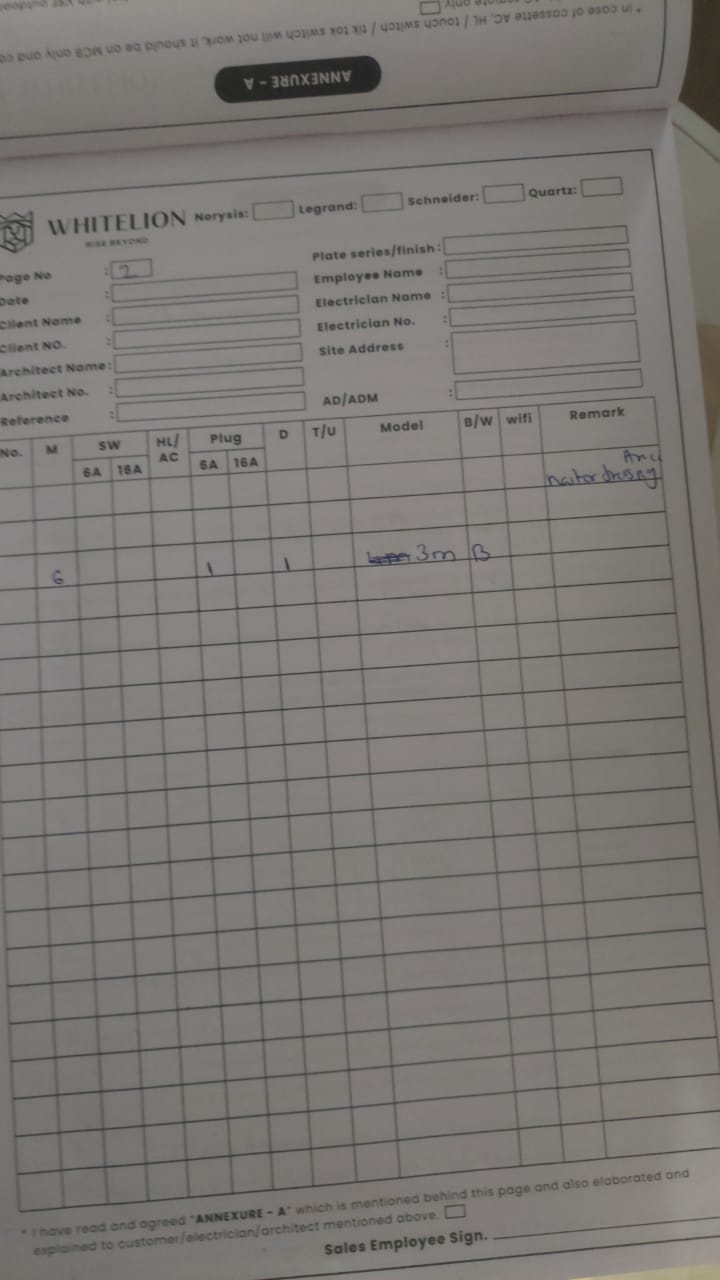 * In case of cassette AC, HL / touch switch / tik tok switch will not work, it should be on MCB only and
ANNEXURE - A
WHITELION
RISE BEYOND
Norysis: Legrand: Schneider: Quartz:
Page No : 2
Date :
Client Name :
Client NO. :
Architect Name:
Architect No. :
Reference :
Plate series/finish:
Employee Name :
Electrician Name :
Electrician No. :
Site Address :
AD/ADM :
No. M SW HL/AC Plug D T/U Model B/W wifi Remark
6A 16A 6A 16A
6 1 1 3m B
* I have read and agreed "ANNEXURE - A" which is mentioned behind this page and also elaborated and
explained to customer/electrician/architect mentioned above.
Sales Employee Sign.